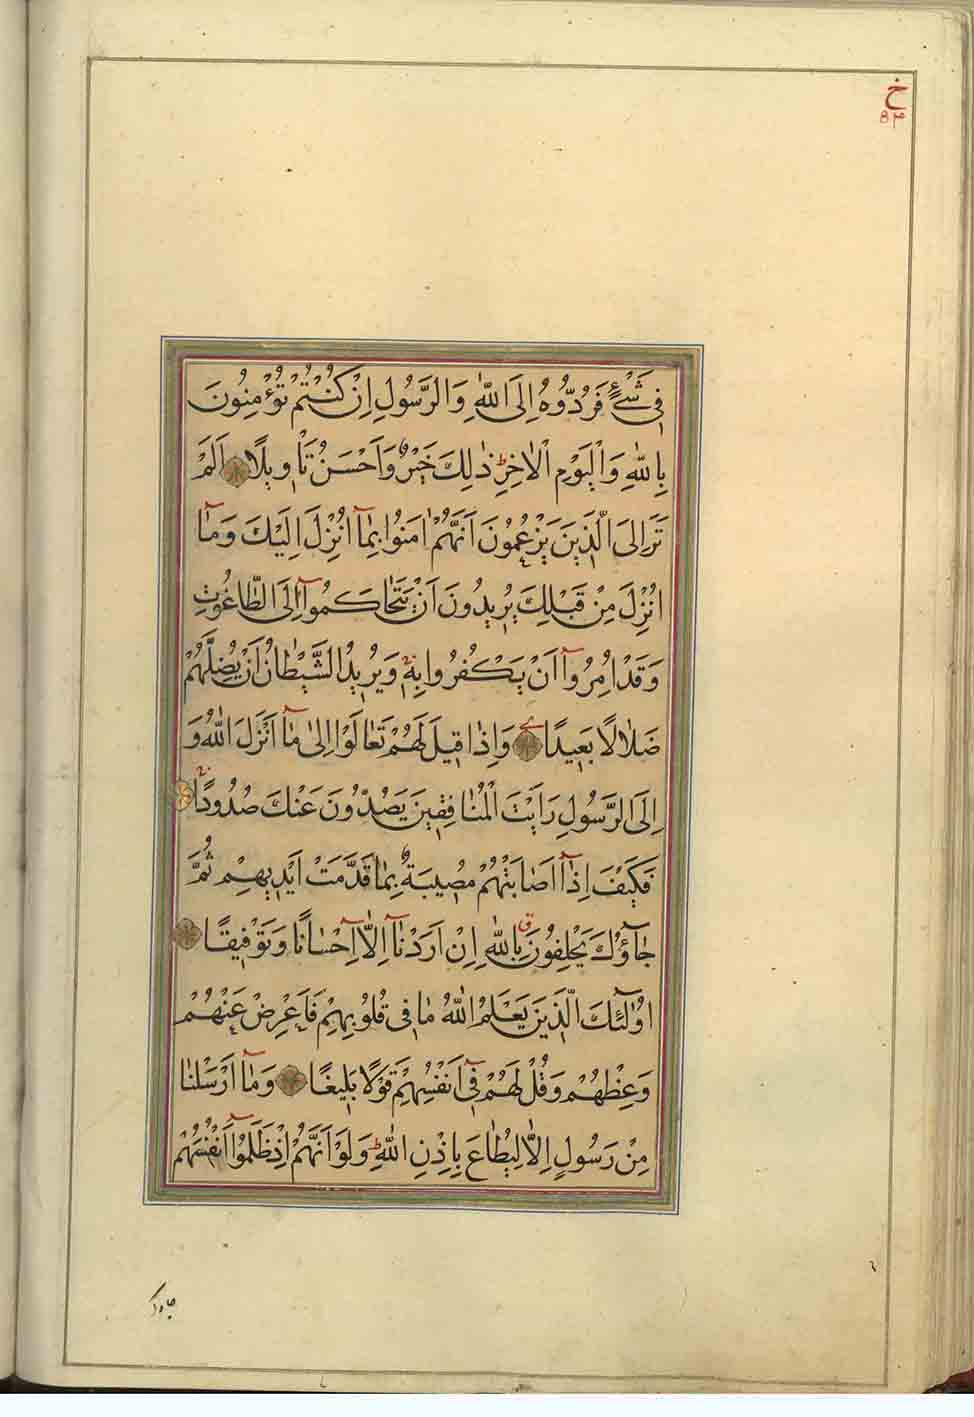 خ
۸۴
فِي شَيْءٍ فَرُدُّوهُ اِلَى اللّٰهِ وَالرَّسُولِ اِنْ كُنْتُمْ تُؤْمِنُونَ
بِاللّٰهِ وَالْيَوْمِ الْاٰخِرِ ذٰلِكَ خَيْرٌ وَاَحْسَنُ تَاْوِيلًا اَلَمْ
تَرَ اِلَى الَّذِينَ يَزْعُمُونَ اَنَّهُمْ اٰمَنُوا بِمٰٓا اُنْزِلَ اِلَيْكَ وَمٰٓا
اُنْزِلَ مِنْ قَبْلِكَ يُرِيدُونَ اَنْ يَتَحٰاكَمُوٓا اِلَى الطّٰاغُوتِ
وَقَدْ اُمِرُوٓا اَنْ يَكْفُرُوا بِهِ وَيُرِيدُ الشَّيْطٰانُ اَنْ يُضِلَّهُمْ
ضَلٰالًا بَعِيدًا وَاِذٰا قِيلَ لَهُمْ تَعٰالَوْا اِلىٰ مٰٓا اَنْزَلَ اللّٰهُ وَ
اِلَى الرَّسُولِ رَاَيْتَ الْمُنٰافِقِينَ يَصُدُّونَ عَنْكَ صُدُودًا
فَكَيْفَ اِذٰٓا اَصٰابَتْهُمْ مُصِيبَةٌ بِمٰا قَدَّمَتْ اَيْدِيهِمْ ثُمَّ
جٰٓاؤُكَ يَحْلِفُونَ بِاللّٰهِ اِنْ اَرَدْنٰٓا اِلّٰٓا اِحْسٰانًا وَتَوْفِيقًا
اُولٰٓئِكَ الَّذِينَ يَعْلَمُ اللّٰهُ مٰا فِي قُلُوبِهِمْ فَاَعْرِضْ عَنْهُمْ
وَعِظْهُمْ وَقُلْ لَهُمْ فِٓي اَنْفُسِهِمْ قَوْلًا بَلِيغًا وَمٰٓا اَرْسَلْنٰا
مِنْ رَسُولٍ اِلّٰا لِيُطٰاعَ بِاِذْنِ اللّٰهِ وَلَوْ اَنَّهُمْ اِذْ ظَلَمُوٓا اَنْفُسَهُمْ
جاوك